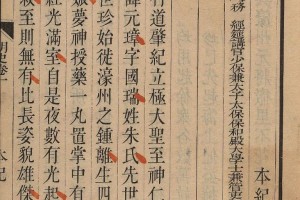 本紀
務 經筵講官少保兼太子太保保和殿大學士兼管吏
行道肇紀立極大聖至神仁
諱元璋字國瑞姓朱氏先世
世珍始徙濠州之鍾離生四
娠夢神授藥一丸置掌中有
紅光滿室自是夜數有光起
救至則無有比長姿貌雄傑
明史卷一 本紀